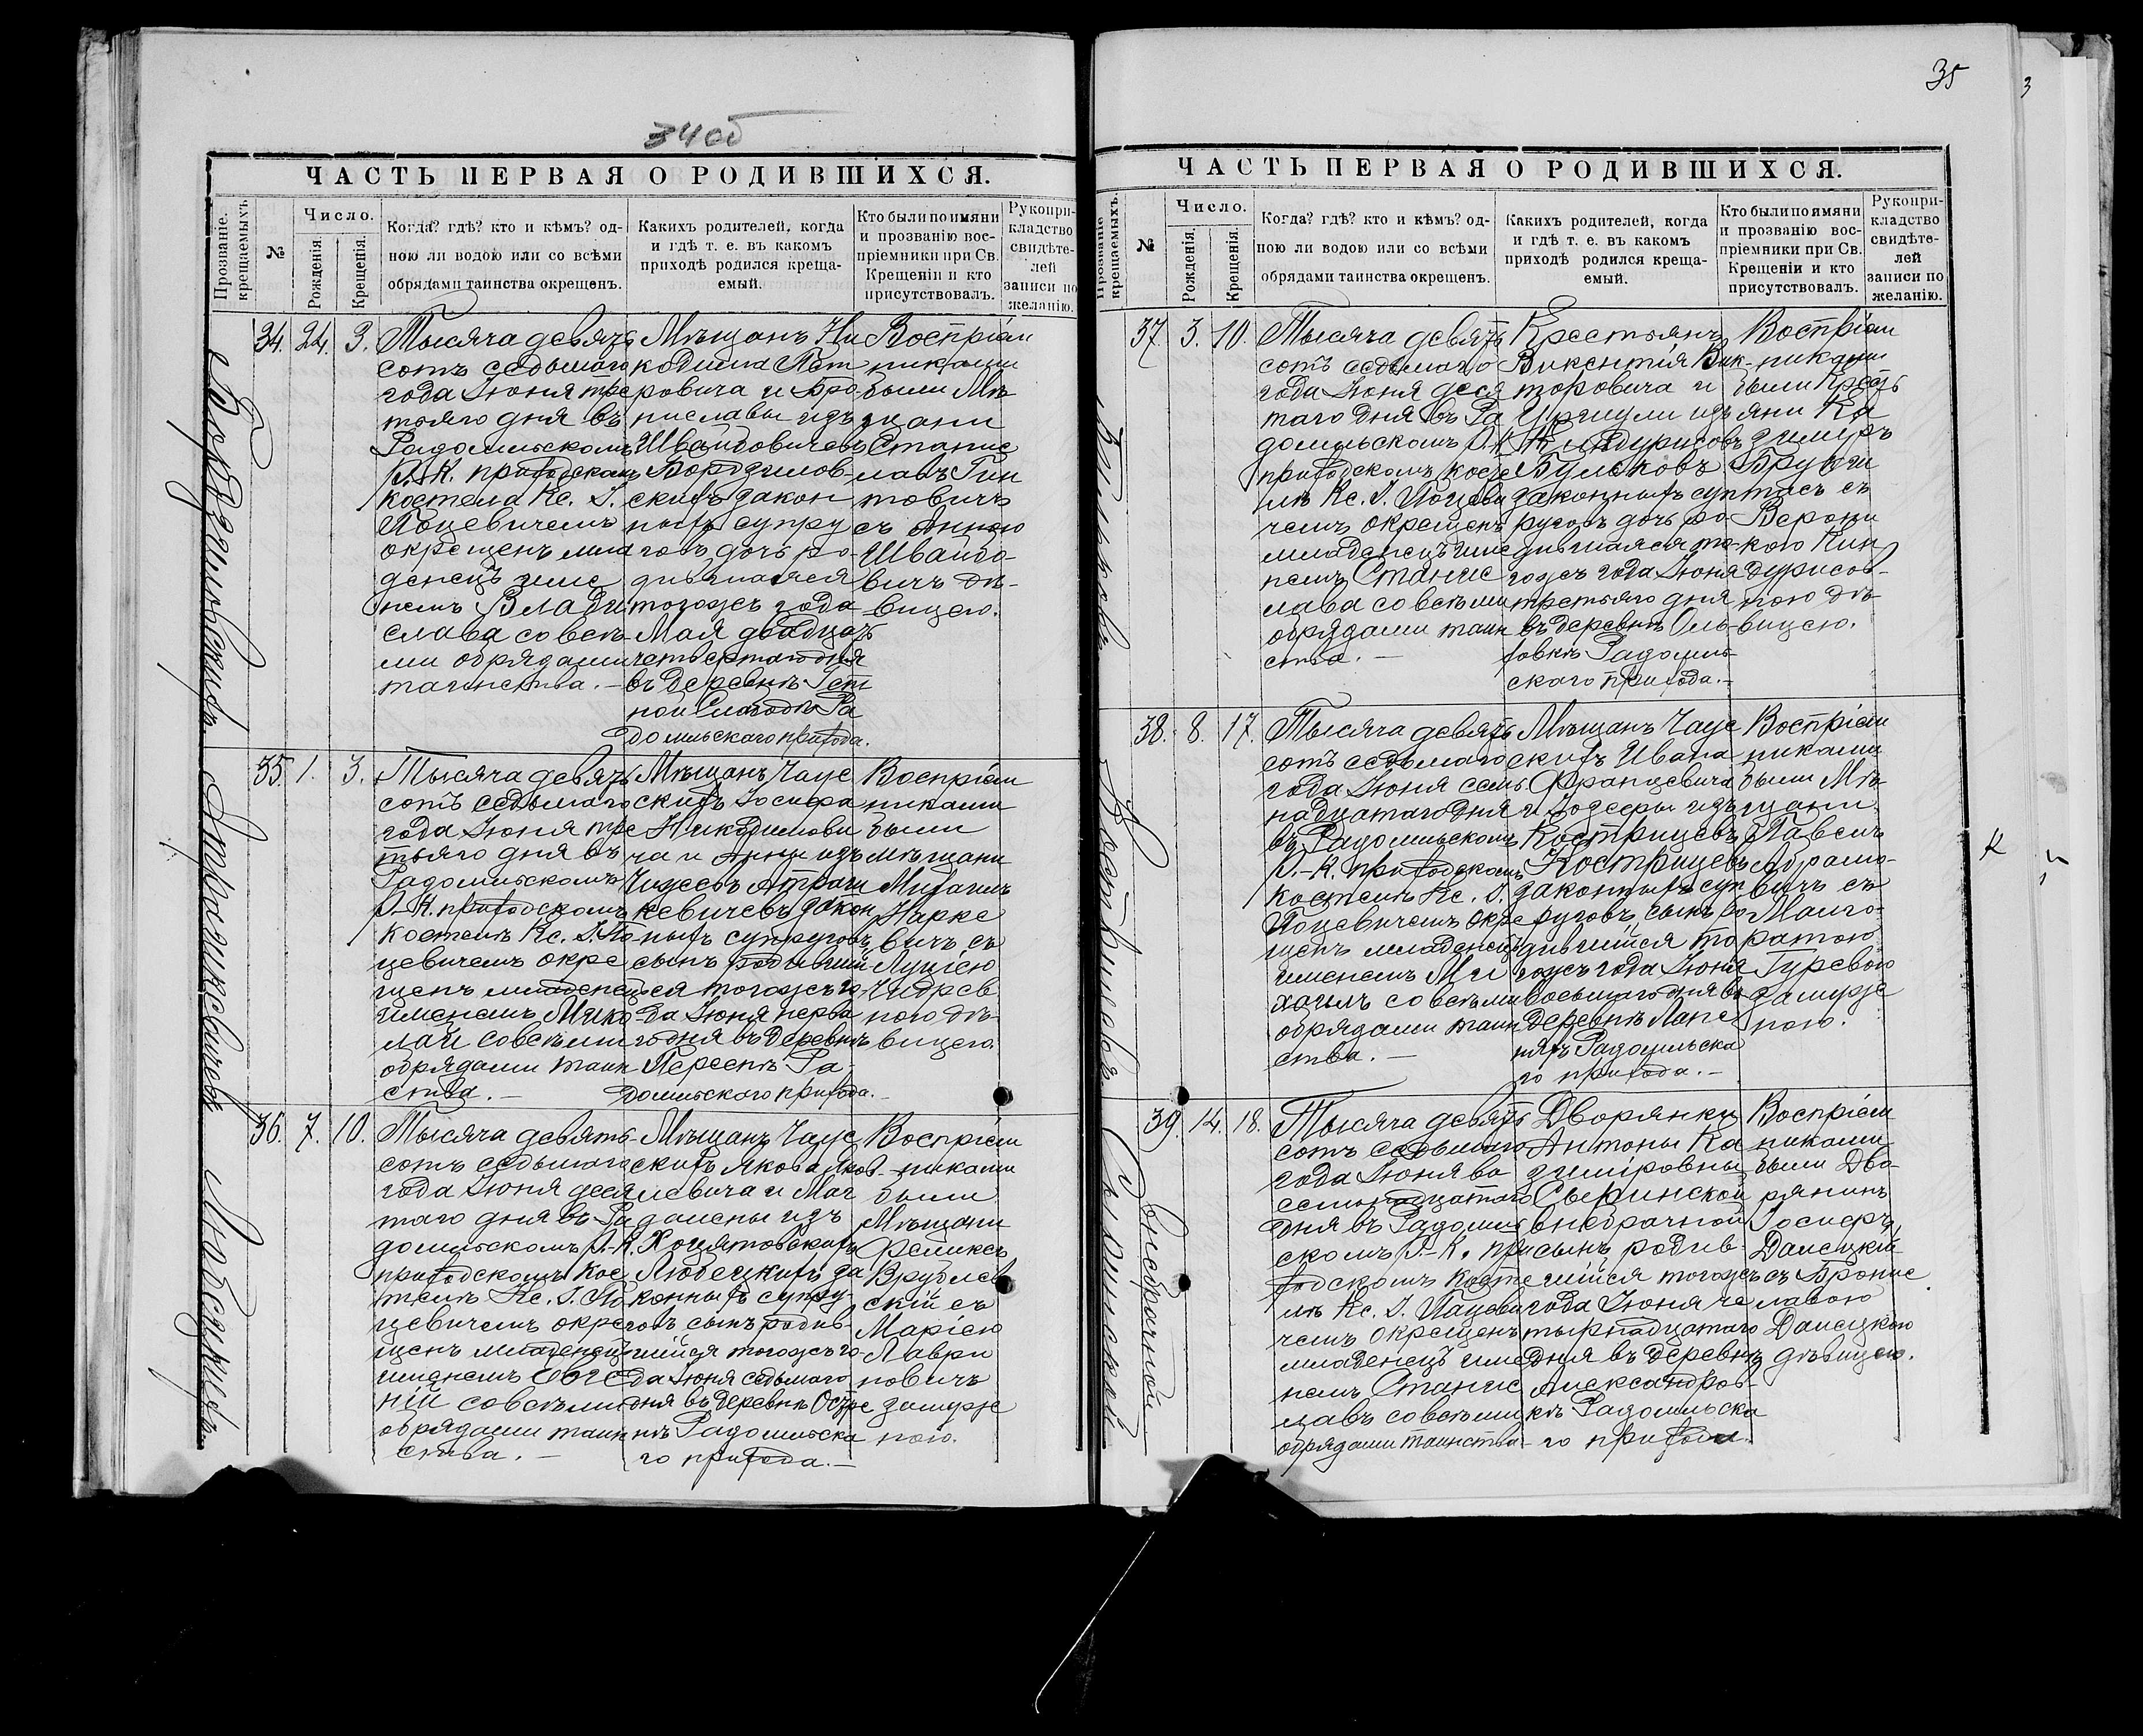 34 об
ЧАСТЬ ПЕРВАЯ О РОДИВШИХСЯ.
Прозваніе крещаемыхъ.
№
Число.
Рожденія.
Крещенія.
Когда? гдѣ? кто и кѣмъ? од-
ною ли водою или со всѣми
обрядами таинства окрещенъ.
Какихъ родителей, когда
и гдѣ т. е. въ какомъ
приходѣ родился креща-
емый.
Кто были по имяни
и прозванію вос-
пріемники при Св.
Крещеніи и кто
присутствовалъ.
Рукопри-
кладство
свидѣте-
лей
записи по
желанію.
34. 24. 3.
Тысяча девять
сотъ седьмаго
года Іюня тре
тьяго дня въ
Радомльскомъ
Р.-К. приходскомъ
костела Кс. І.
Поцевичемъ
окрещенъ мла
денецъ име
немъ Влади
слава со всѣ
ми обрядами
таинства. —
Мѣщанъ Ни
кодима Пет
ровича и Бро
ниславы изъ
Швайдовичевъ
Бородзилов
скихъ закон
ныхъ супру
говъ дочь ро-
дившаяся
тогожъ года
Мая двадцать
четвертаго дня
въ деревнѣ
ной Слободѣ Ра
домльскаго прихода.
Воспріем
никами
были Мѣ
щани
Станис
лавъ Гин
товичъ
съ Анною
Швайдо-
вичъ дѣ-
вицею.
35. 1. 3.
Тысяча девять
сотъ седьмаго
года Іюня тре
тьяго дня въ
Радомльскомъ
Р.-К. приходскомъ
костелѣ Кс. І. По
цевичемъ окре
щенъ младенецъ
именемъ Нико
лай со всѣми
обрядами таин
ства. —
Мѣщанъ Чаус
скихъ Іосифа
Никодимови
ча и Анны изъ
кевичевъ закон
ныхъ супруговъ
сынъ родивший
ся тогожъ го-
да Іюня перва
го дня въ деревнѣ
Ра-
домльскаго прихода. —
Воспріем
никами
были
мѣщани
Михаилъ
Нарке
вичъ съ
Луціею
ною дѣ-
вицею.
36. 7. 10.
Тысяча девять
сотъ седьмаго
года Іюня деся
таго дня въ Ра
домльскомъ Р.-К.
приходскомъ кос
телѣ Кс. І. По
цевичемъ окре
щенъ младенецъ
именемъ Евге
ній со всѣми
обрядами таин
ства. —
Мѣщанъ Чаус
скихъ Якова Яков
левича и Маг
далены изъ
Хоцятовскихъ
Любецкихъ за
конныхъ супру-
говъ сынъ родив-
шійся тогожъ го
да Іюня седьмаго
дня въ деревнѣ
нѣ Радомльска
го прихода. —
Воспріем
никами
были
Мѣщани
Феликсъ
Врублев
скій съ
Маріею
Лаври
новичъ
замуж
ною.
35
ЧАСТЬ ПЕРВАЯ О РОДИВШИХСЯ.
Прозваніе крещаемыхъ.
№
Число.
Рожденія.
Крещенія.
Когда? гдѣ? кто и кѣмъ? од-
ною ли водою или со всѣми
обрядами таинства окрещенъ.
Какихъ родителей, когда
и гдѣ т. е. въ какомъ
приходѣ родился креща-
емый.
Кто были по имяни
и прозванію вос-
пріемники при Св.
Крещеніи и кто
присутствовалъ.
Рукопри-
кладство
свидѣте-
лей
записи по
желанію.
37. 3. 10.
Тысяча девять
сотъ седьмаго
года Іюня деся
таго дня въ Ра
домльскомъ Р.-К.
приходскомъ косте
лѣ Кс. І. Поцеви
чемъ окрещенъ
младенецъ име
немъ Станис
лава со всѣми
обрядами таин
ства. —
Крестьянъ
Викентія Вик-
торовича и
Уршули изъ
Бульковъ
законныхъ суп
руговъ дочь ро-
дившаяся то-
гожъ года Іюня
третьяго дня
въ деревнѣ Оль-
ховкѣ Радомль-
скаго прихода. —
Воспріем
никами
были Кресть
яни Ка
зимиръ
съ
Верони
кою
ною дѣ-
вицею.
38. 8. 17.
Тысяча девять
сотъ седьмаго
года Іюня сем
надцатаго дня
въ Радомльскомъ
Р.-К. приходскомъ
костелѣ Кс. І.
Поцевичемъ окре
щенъ младенецъ
именемъ Ми
хаилъ со всѣми
обрядами таин
ства. —
Мѣщанъ Чаус
скихъ Ивана
Францевича
и Іозефы изъ
Кострицевъ
Кострицевъ
законныхъ суп
руговъ, сынъ ро
дившийся то
гожъ года Іюня
восьмаго дня въ
деревнѣ
Радомльска
го прихода. —
Воспріем
никами
были Мѣ
щани
Павелъ
Абрамо-
вичъ съ
Малго-
ратою
Гуревою
замуж
ною.
39. 14. 18.
Тысяча девять
сотъ седьмаго
года Іюня во
семнадцатаго
дня въ Радомль
скомъ Р.-К. при
ходскомъ косте
лѣ Кс. І. Поцеви
чемъ окрещенъ
младенецъ име
немъ Станис
лавъ со всѣми
обрядами таинства —
Дворянки
Антоны Ка
зиміровны
внебрачной
сынъ родив-
шійся тогожъ
года Іюня че
тырнадцатаго
дня въ деревнѣ
Александров-
кѣ Радомльска
го прихода.
Воспріем
никами
были Дво
рянинъ
Іосифъ
Далецкій
съ Бронис
лавою
Далецкою
дѣвицею.